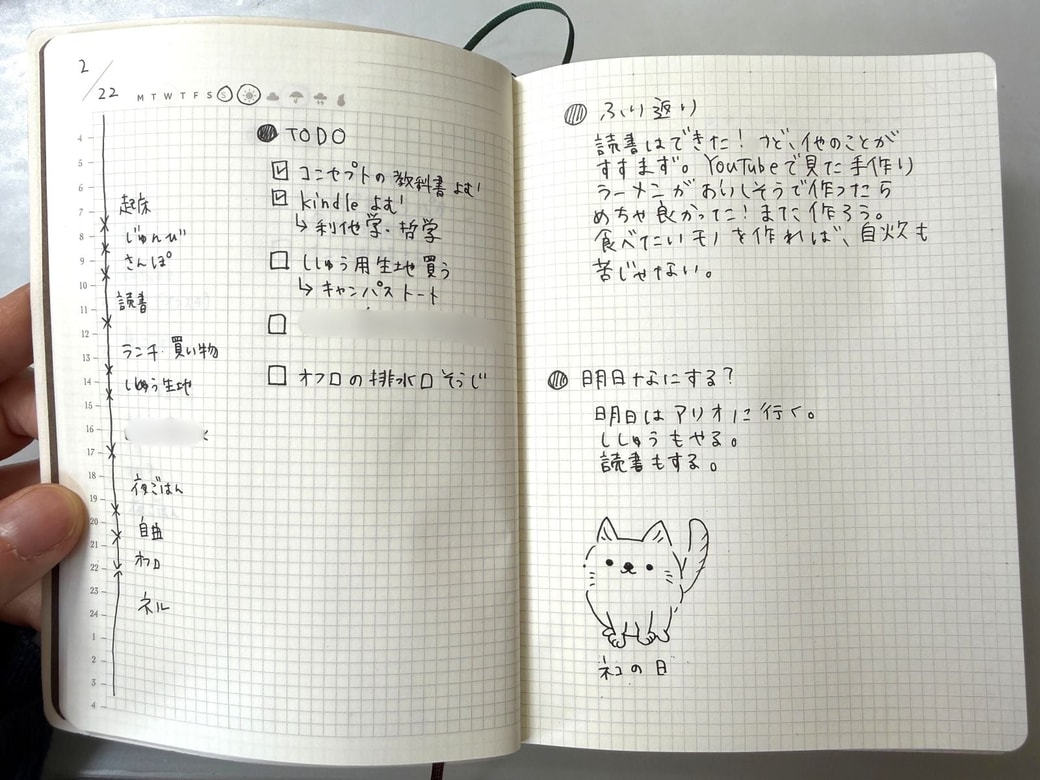 2/22
M T W T F S S
4
5
6
7
8
9
10
11
12
13
14
15
16
17
18
19
20
21
22
23
24
1
2
3
4
起床
じゅんび
さんぽ
読書
ランチ・買い物
ししゅう生地
夜ごはん
自由
オフロ
ネル
TODO
コンセプトの教科書よむ!
kindleよむ!
↳ 利他学・哲学
ししゅう用生地買う
↳ キャンバストート
オフロの排水口そうじ
ふり返り
読書はできた!けど、他のことが
すすまず。YouTubeで見た手作り
ラーメンがおいしそうで作ったら
めちゃ良かった!また作ろう。
食べたいモノを作れば、自炊も
苦じゃない。
明日なにする?
明日はアリオに行く。
ししゅうもやる。
読書もする。
ネコの日